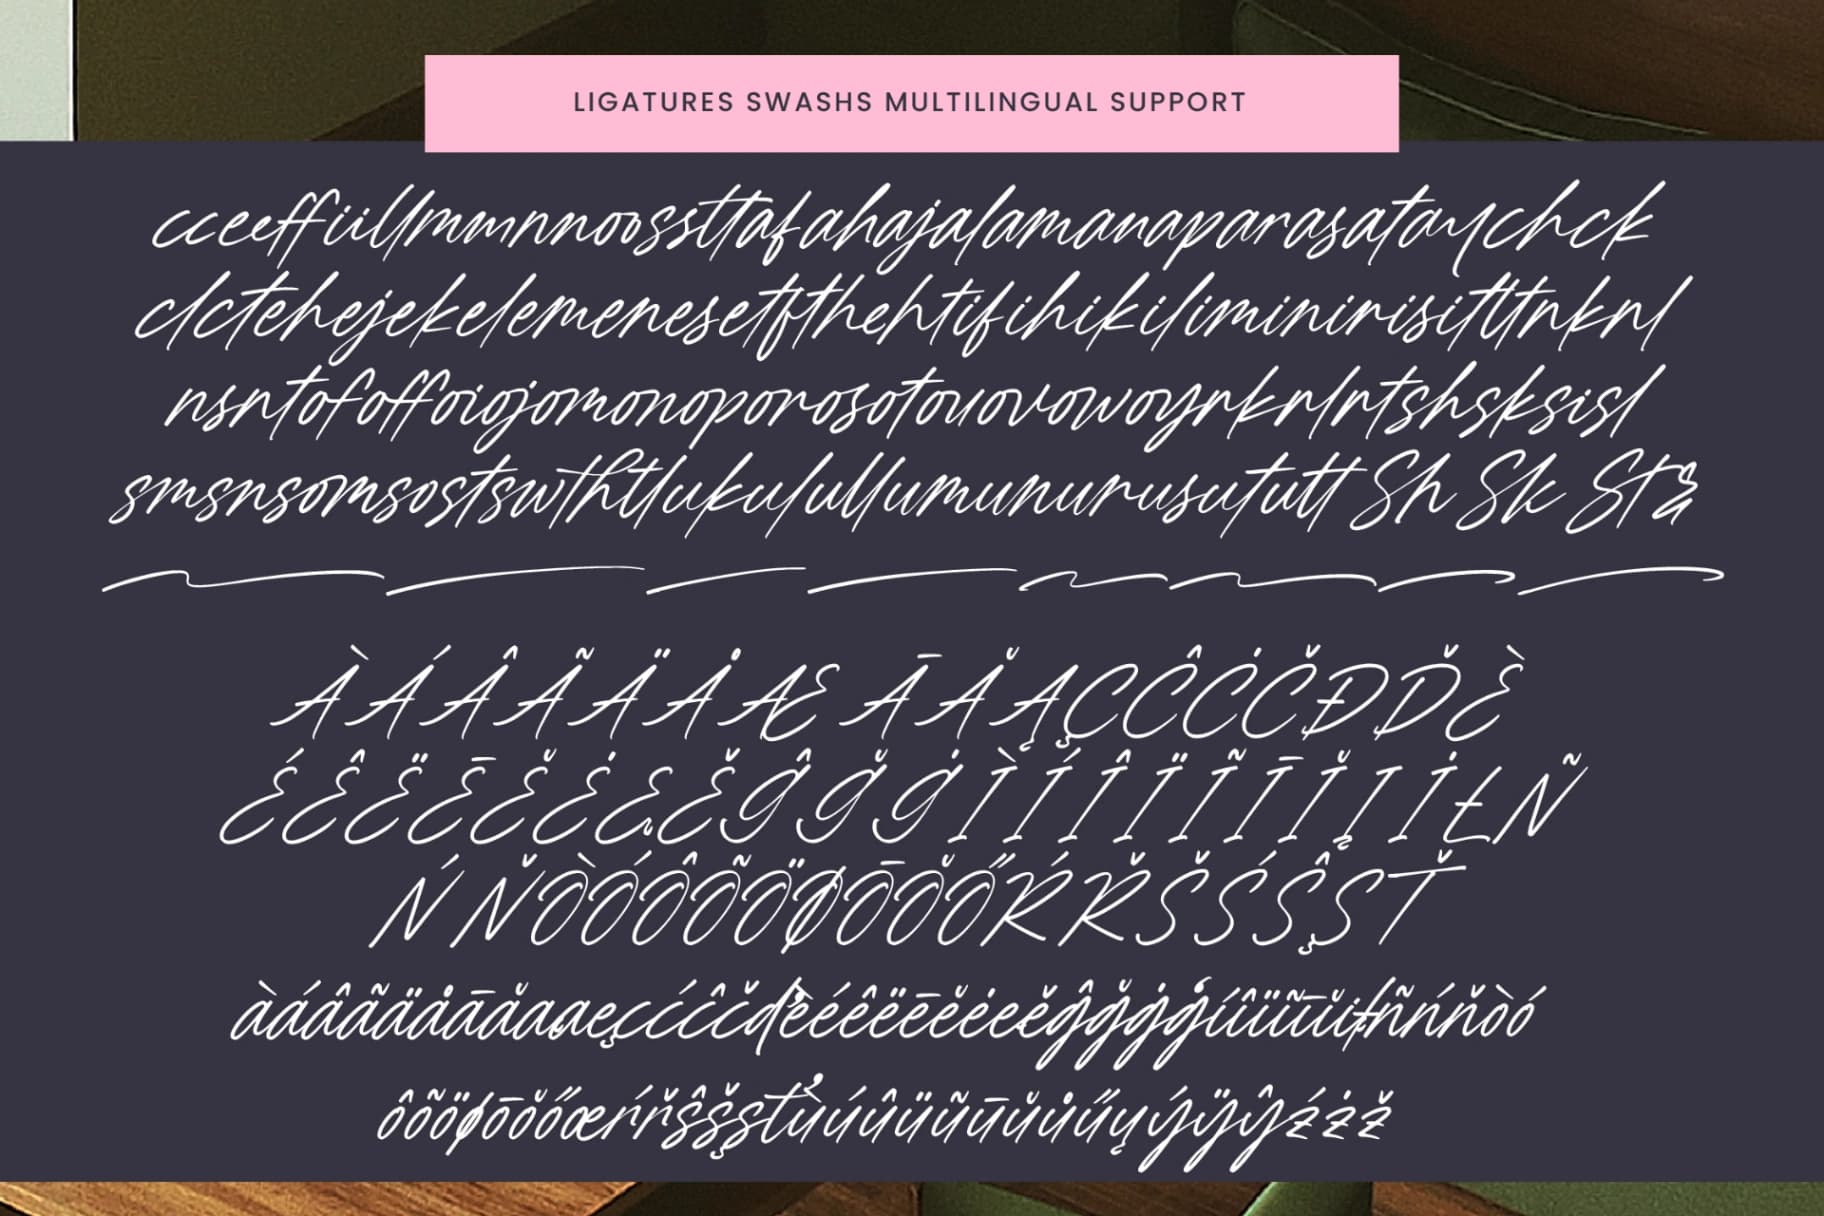 LIGATURES SWASHS MULTILINGUAL SUPPORT
cceeffiillmmnnoossttafahajalamanaparasataychck
clctehejekelemenesetftthehtifihikiliminirisitttnknl
nsntofoffoiojomonoporosotouovowoyrkrlrtshsksisl
smsnsomsostswthtlukulullumunurusututt Sh Sk St&
ÀÁÂÃÄȦÆĀǍĄÇĈĊČĐĎÈ
ÉÊËĒĚĖĘĚĜǦĠÌÍÎÏĨĪǏĮİŁÑ
ŃŇÒÓÔÕÖØŌǑŐŔŘŠŚŜŞŤ
àáâãäȧāǎaąęçćĉčďèéêëēěėęěĝǧġģíîïĩīǐįłñńňòó
ôõöøōǒőæŕřŝšşťùúûüũūǔůűųýÿŷźżž